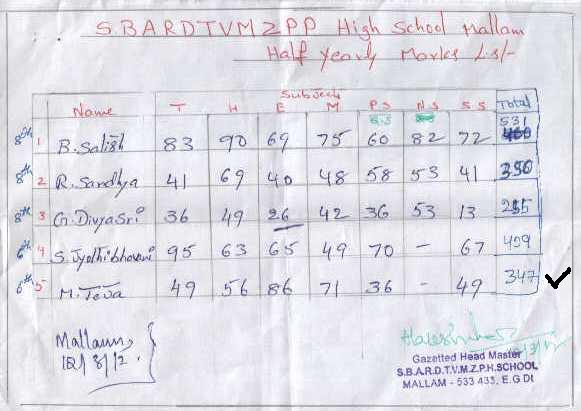 S.BARDTVMZPP High School Mallam
Half Yearly Marks List
Subject
Name T H E M P.S N.S S S Total
B.S
8th 1 B. Satish 83 90 69 75 60 82 72 531
8th 2 R. Sandhya 41 69 40 48 58 53 41 350
8th 3 G. DivyaSri 36 49 26 42 36 53 13 255
6th 4 S. Jyothibhavani 95 63 65 49 70 - 67 409
6th 5 M. Teja 49 56 86 71 36 - 49 347
Mallam
12/3/12.
Gazetted Head Master
S.B.A.R.D.T.V.M.Z.P.H.SCHOOL
MALLAM - 533 433, E.G DI